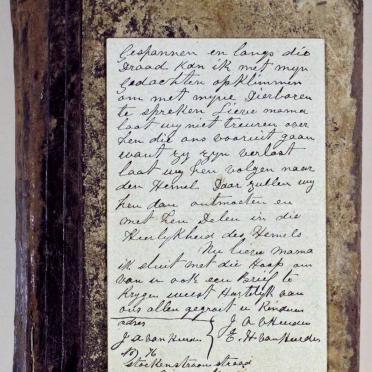 Gespannen en langs die
Draad kan ik met myn
Gedachten opklimmin
om met myne Dierbaren
te spreken Lieve mama
laat wy niet treuren over
hen die ons vooruit gaan
want zy zyn verlost
laat wy hen volgen naar
den Hemel Daar zullen wy
hen dan ontmoeten en
met hen Delen in die
Heerlykheid des Hemels
Nu lieve mama
ik sluit met die Hoop om
van u ook een Brief te
krygen weest Hartelyk van
ons allen gegroet u kinders
adres
J A
J A van
E H van
No 76
straad